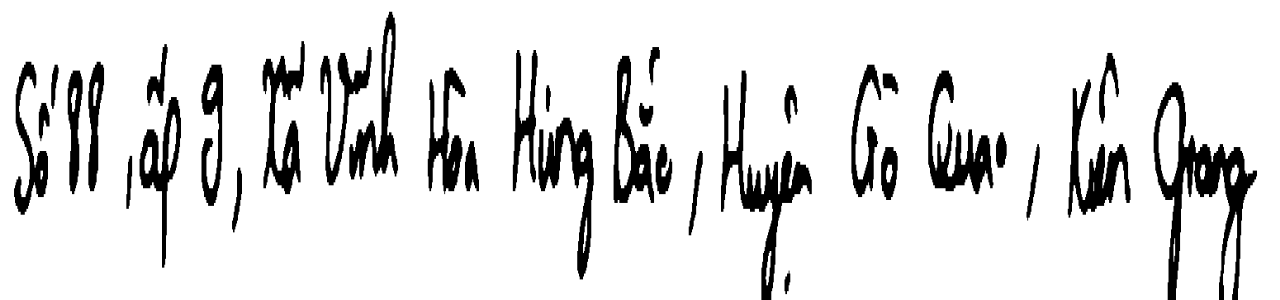 Số 88, ấp 9, Xã Vĩnh Hòa Hưng Bắc, Huyện Gò Quao, Kiên Giang